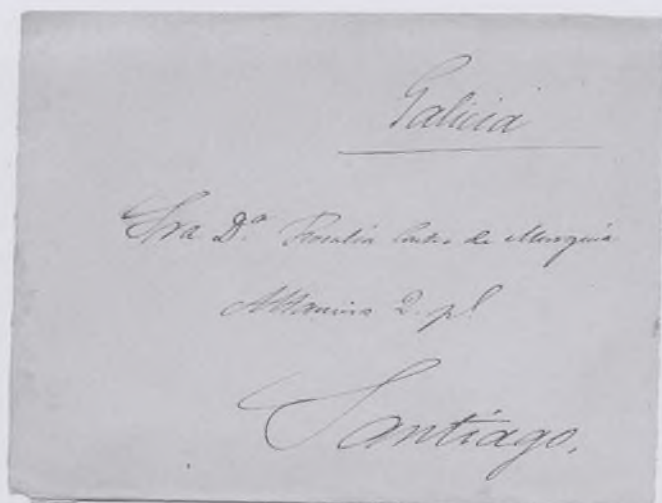 Galicia
Sra D.ª Rosalia Castro de Murguia
Altamira 2. pl
Santiago.